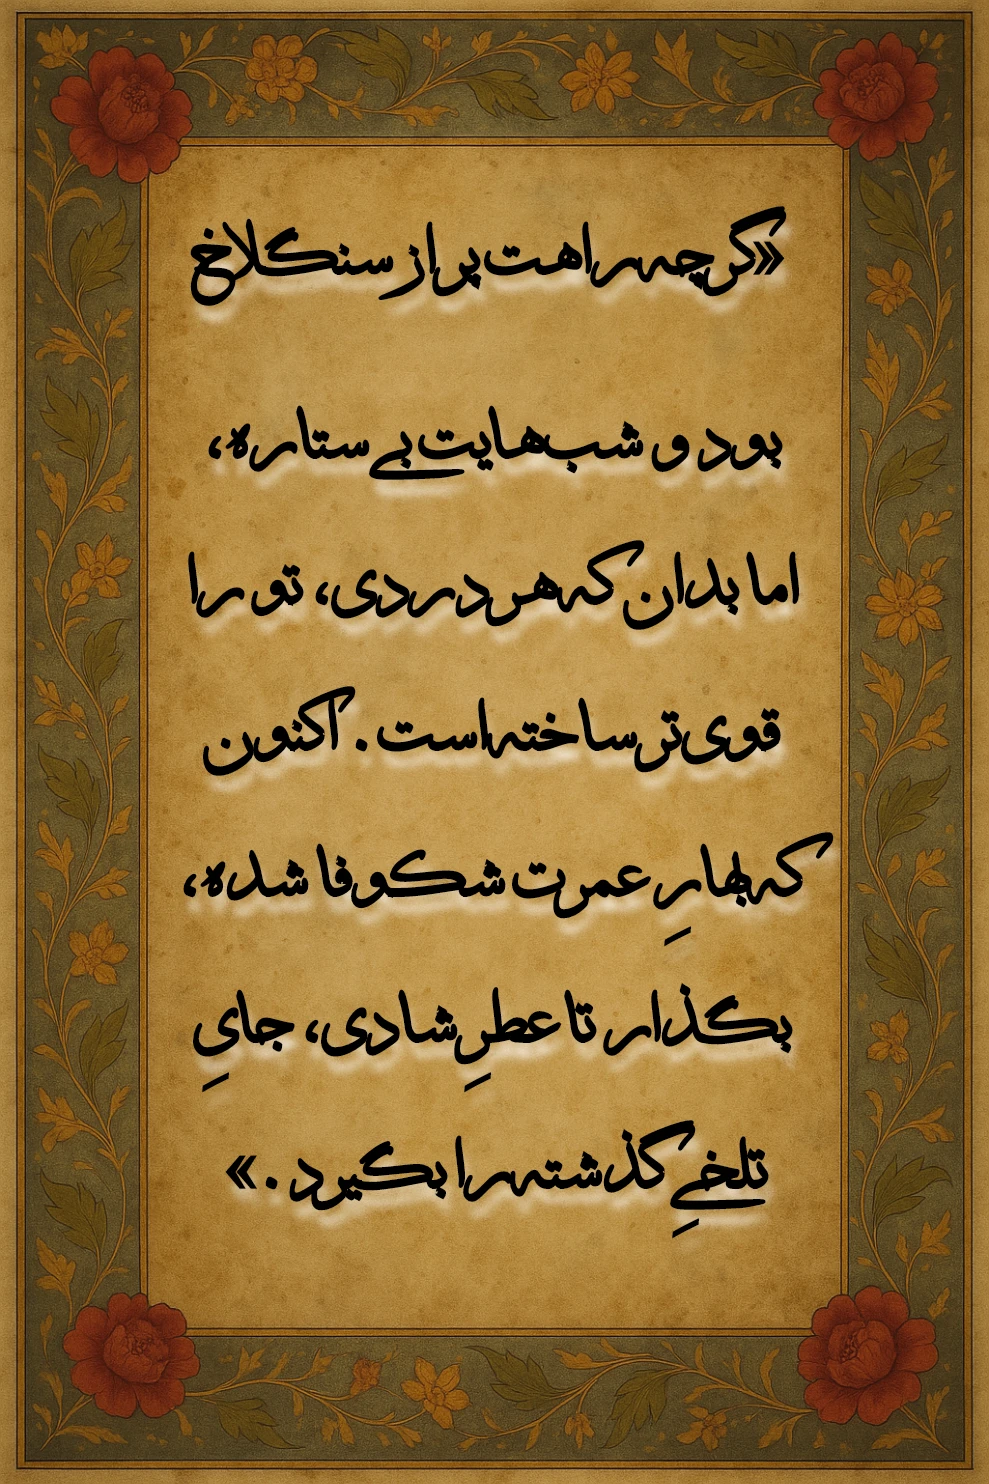 «گرچه راهت پر از سنگلاخ
بود و شب‌هایت بی‌ستاره،
اما بدان که هر دردی، تو را
قوی‌تر ساخته است. اکنون
که بهارِ عمرت شکوفا شده،
بگذار تا عطرِ شادی، جایِ
تلخیِ گذشته را بگیرد.»